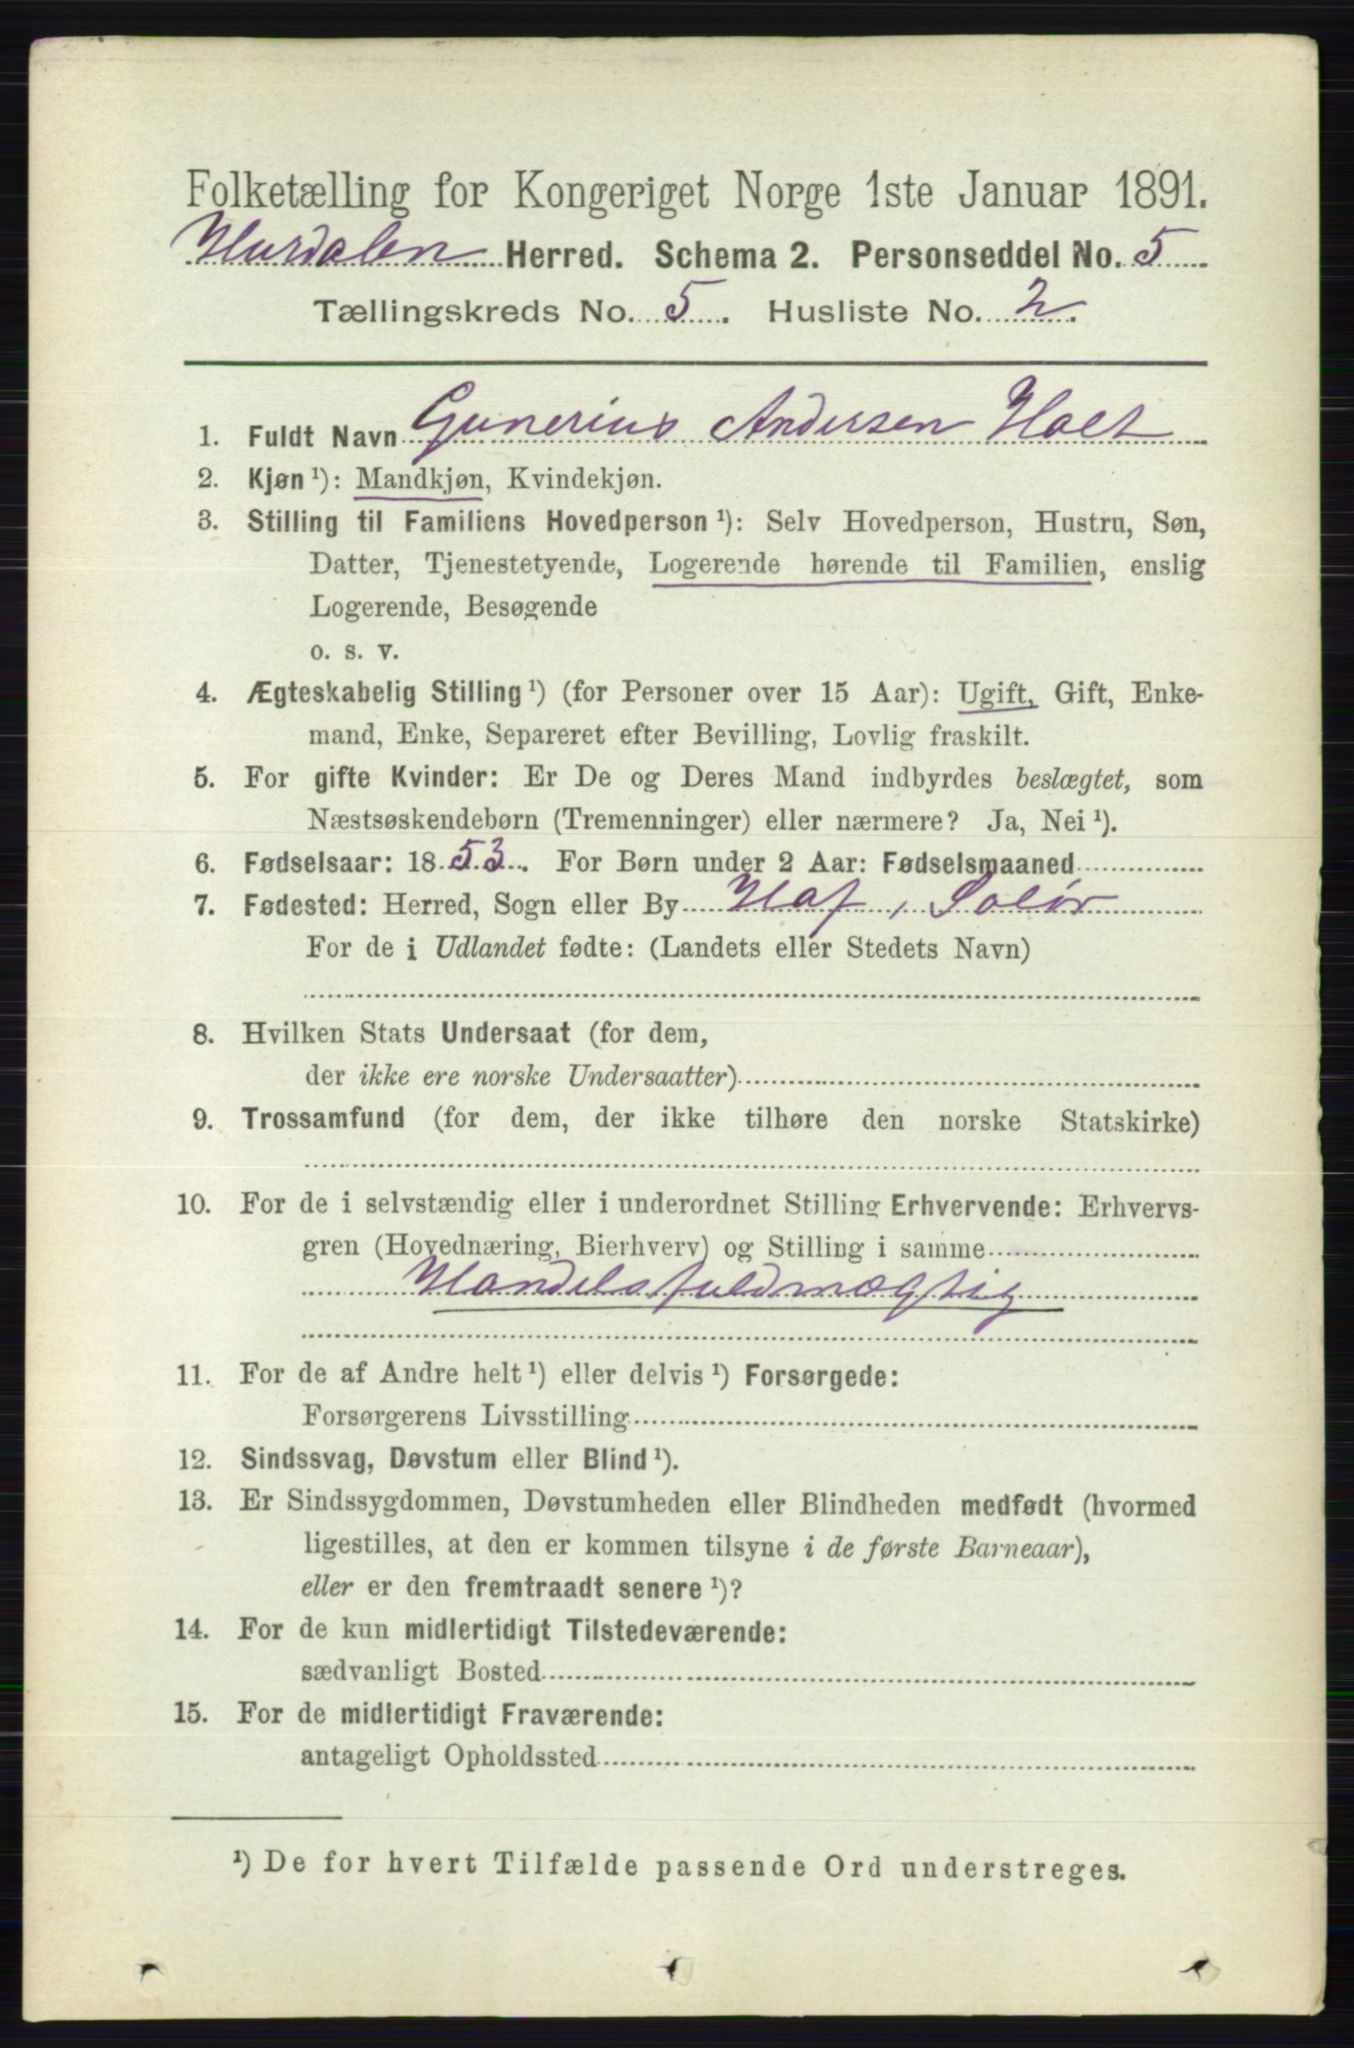 Folketælling for Kongeriget Norge 1ste Januar 1891.
Hurdalen Herred. Schema 2. Personseddel No. 5
Tællingskreds No. 5. Husliste No. 2.
1. Fuldt Navn Gunerius Andersen Holt
2. Kjøn ¹): Mandkjøn, Kvindekjøn.
3. Stilling til Familiens Hovedperson ¹): Selv Hovedperson, Hustru, Søn,
Datter, Tjenestetyende, Logerende hørende til Familien, enslig
Logerende, Besøgende
o. s. v.
4. Ægteskabelig Stilling ¹) (for Personer over 15 Aar): Ugift, Gift, Enke-
mand, Enke, Separeret efter Bevilling, Lovlig fraskilt.
5. For gifte Kvinder: Er De og Deres Mand indbyrdes beslægtet, som
Næstsøskendebørn (Tremenninger) eller nærmere? Ja, Nei ¹).
6. Fødselsaar: 1853. For Børn under 2 Aar: Fødselsmaaned
7. Fødested: Herred, Sogn eller By Hof, Solør
For de i Udlandet fødte: (Landets eller Stedets Navn)
8. Hvilken Stats Undersaat (for dem,
der ikke ere norske Undersaatter)
9. Trossamfund (for dem, der ikke tilhøre den norske Statskirke)
10. For de i selvstændig eller i underordnet Stilling Erhvervende: Erhvervs-
gren (Hovednæring, Bierhverv) og Stilling i samme
Handelsfuldmægtig
11. For de af Andre helt ¹) eller delvis ¹) Forsørgede:
Forsørgerens Livsstilling
12. Sindssvag, Døvstum eller Blind ¹).
13. Er Sindssygdommen, Døvstumheden eller Blindheden medfødt (hvormed
ligestilles, at den er kommen tilsyne i de første Barneaar),
eller er den fremtraadt senere ¹)?
14. For de kun midlertidigt Tilstedeværende:
sædvanligt Bosted
15. For de midlertidigt Fraværende:
antageligt Opholdssted
¹) De for hvert Tilfælde passende Ord understreges.